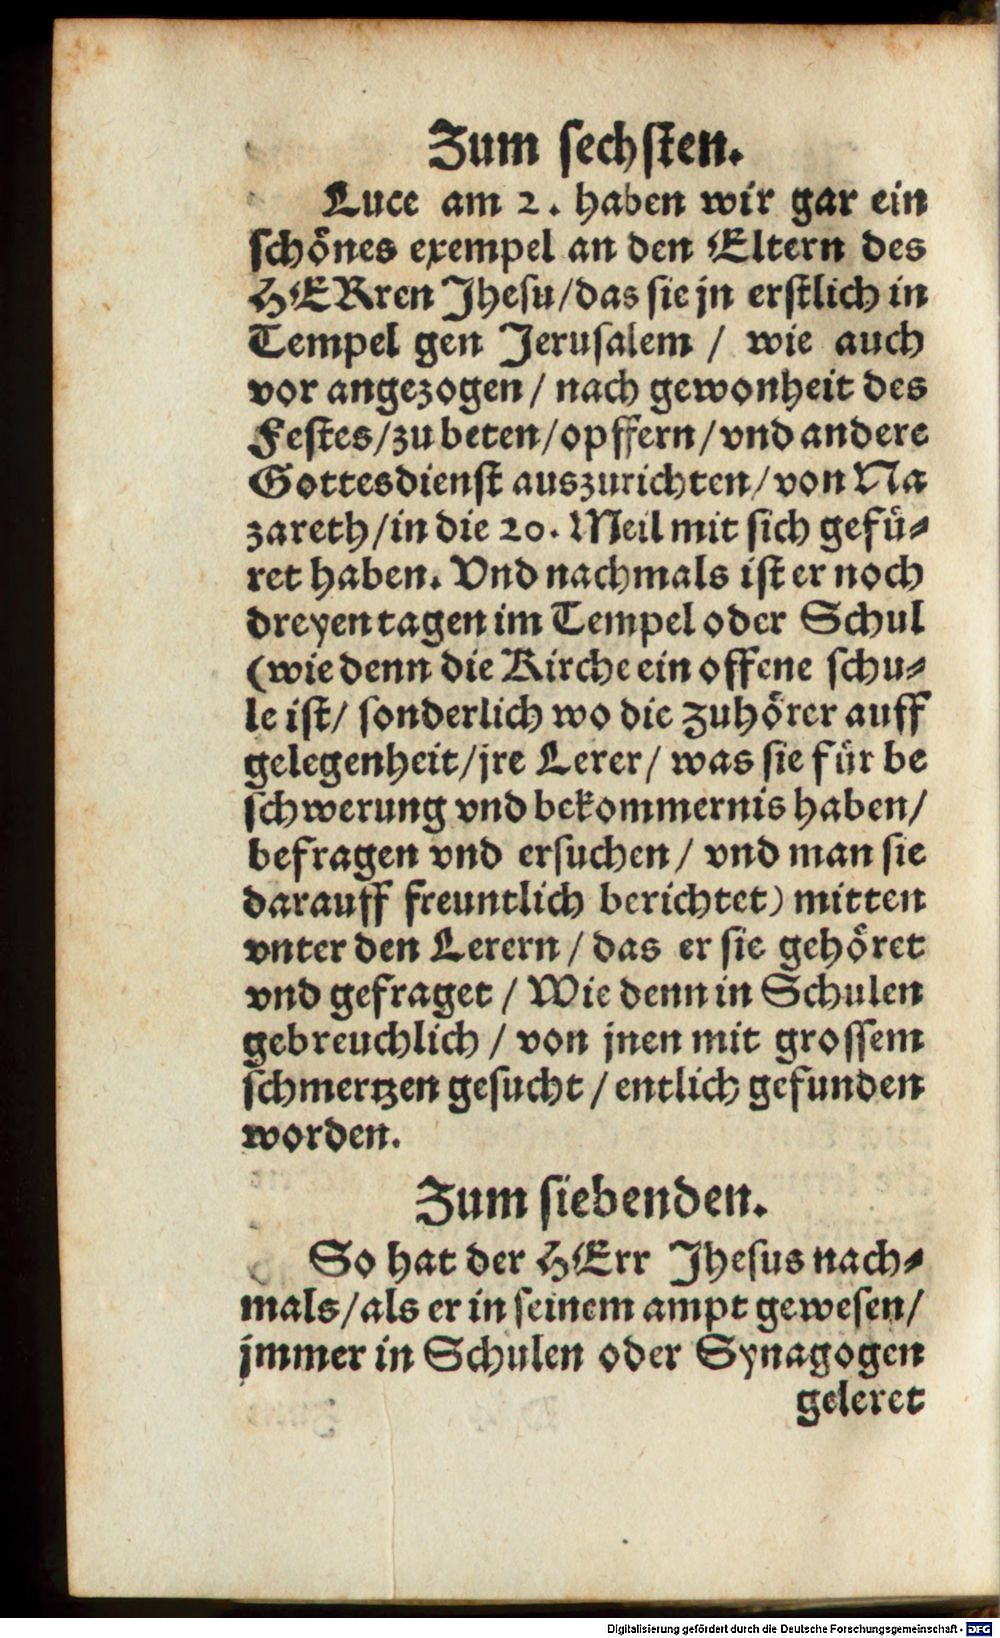 Zum sechsten.
Luce am 2. haben wir gar ein
schönes exempel an den Eltern des
HERren Jhesu/das sie jn erstlich in
Tempel gen Jerusalem / wie auch
vor angezogen / nach gewonheit des
Festes/zu beten/opffern/vnd andere
Gottesdienst auszurichten/von Na
zareth/in die 20. Meil mit sich gefü-
ret haben. Vnd nachmals ist er noch
dreyen tagen im Tempel oder Schul
(wie denn die Kirche ein offene schu-
le ist/ sonderlich wo die zuhörer auff
gelegenheit/jre Lerer/ was sie für be
schwerung vnd bekommernis haben/
befragen vnd ersuchen / vnd man sie
darauff freuntlich berichtet) mitten
vnter den Lerern / das er sie gehöret
vnd gefraget / Wie denn in Schulen
gebreuchlich / von jnen mit grossem
schmertzen gesucht / entlich gefunden
worden.
Zum siebenden.
So hat der HErr Jhesus nach-
mals/als er in seinem ampt gewesen/
jmmer in Schulen oder Synagogen
geleret
Digitalisierung gefördert durch die Deutsche Forschungsgemeinschaft - DFG